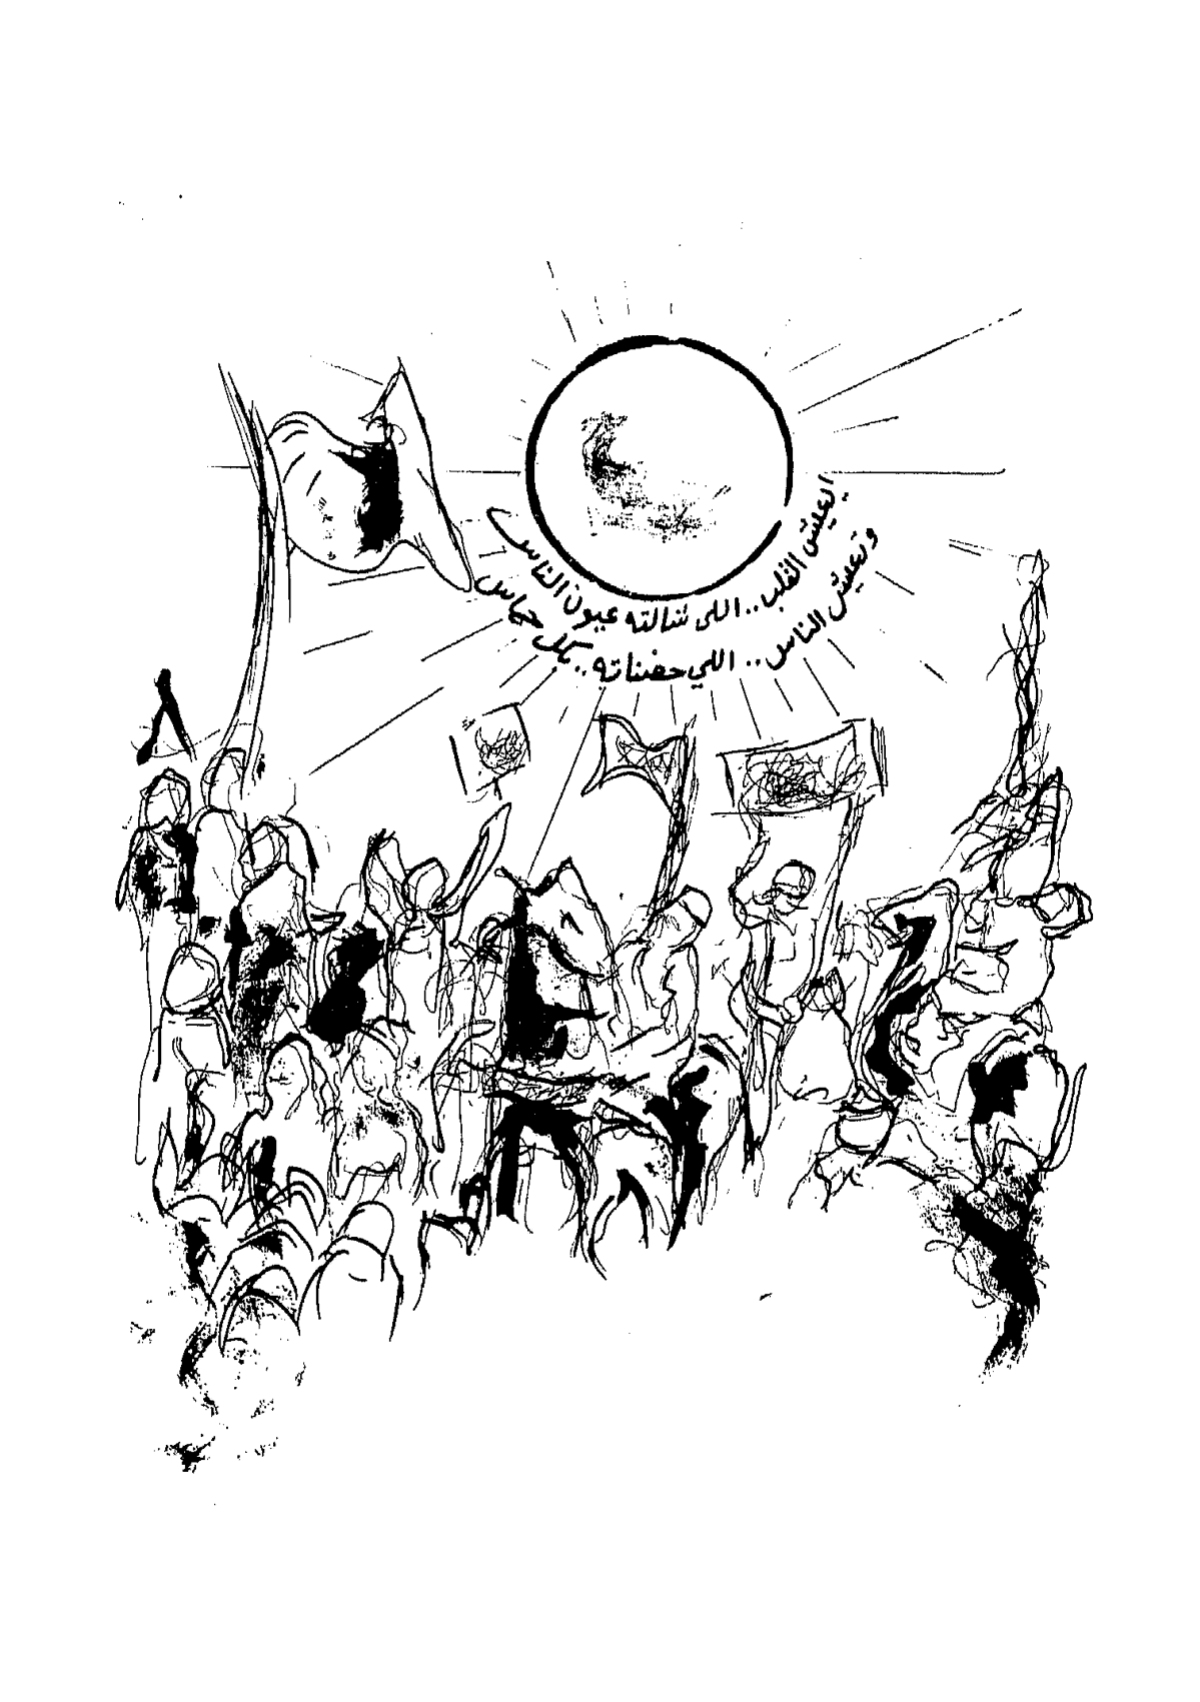 ايعيش القلب .. اللى شالته عيون الناس
وتعيش الناس .. اللي حضناته .. بكل حماس